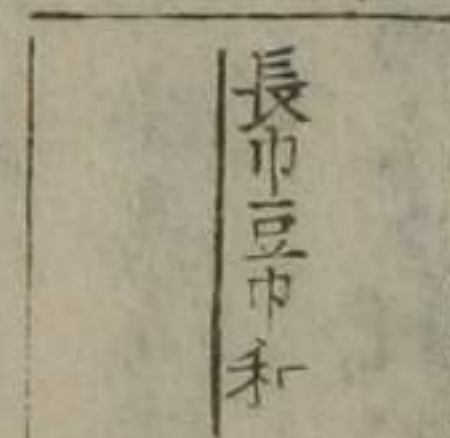 長巾豆巾